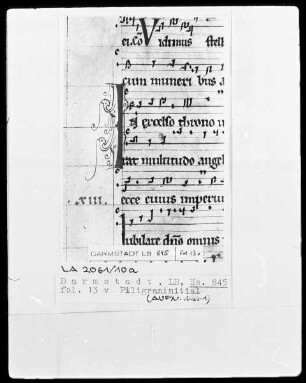 Vidimus stell
cum muneribus a
In excelso throno u
rat multitudo angel
.xiii. ecce cuius imperiu
Iubilate deo omnis
DARMSTADT LB 845 fol. 13v
LA 2061/10a
Darmstadt, LB, Hs. 845
fol. 13 v Filigraninitial